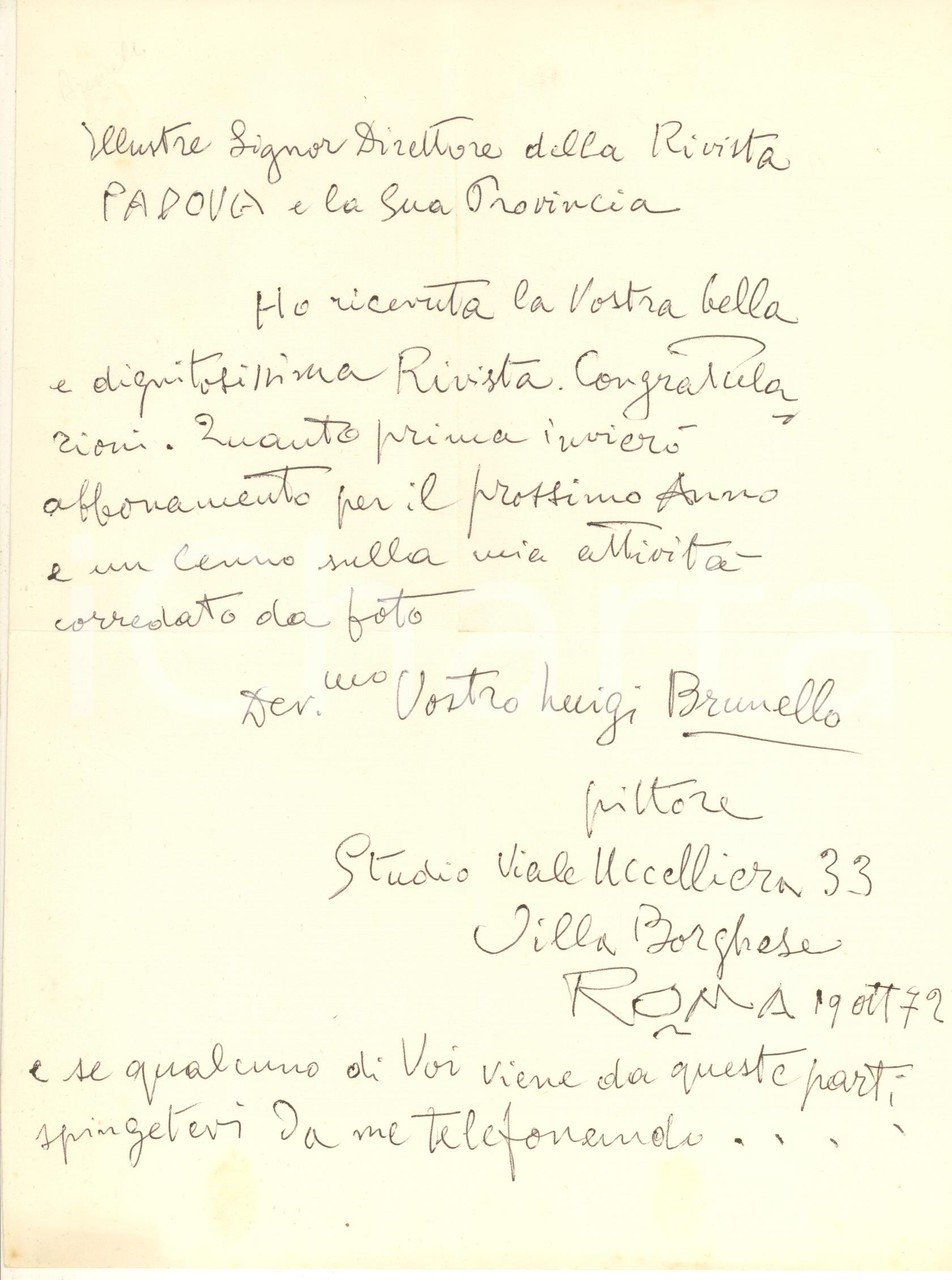 Illustre Signor Direttore della Rivista
PADOVA e la Sua Provincia
Ho ricevuta la Vostra bella
e dignitosissima Rivista. Congratula
zioni. Quanto prima invierò
abbonamento per il prossimo Anno
e un Cenno sulla mia attività
corredato da foto
Dev.mo Vostro Luigi Brunello
pittore
Studio Viale Uccelliera 33
Villa Borghese
ROMA 19 ott 72
e se qualcuno di Voi viene da queste parti
spingetevi Da me telefonando . . . .